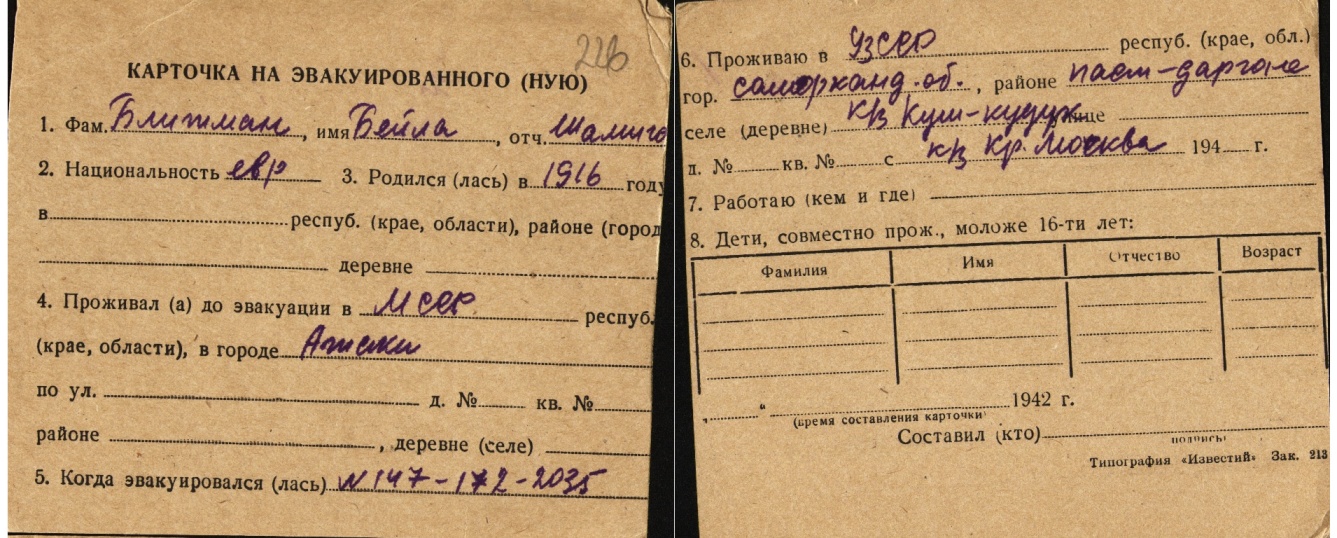 226
КАРТОЧКА НА ЭВАКУИРОВАННОГО (НУЮ)
1. Фам. Ближман, имя Бейла, отч.
2. Национальность евр 3. Родился (лась) в 1916 году
в респуб. (крае, области), районе (город
деревне
4. Проживал (а) до эвакуации в МССР респуб.
(крае, области), в городе Атаки
по ул. д. № кв. №
районе , деревне (селе)
5. Когда эвакуировался (лась) N 147-172-2035
6. Проживаю в УзССР респуб. (крае, обл.)
гор. самарканд. об., районе паст-даргом
селе (деревне) к/з Куш-кудук улице
д. № кв. № с к/з Кр. Москва 194 г.
7. Работаю (кем и где)
8. Дети, совместно прож., моложе 16-ти лет:
Фамилия Имя Отчество Возраст
„ “ 1942 г.
(время составления карточки)
Составил (кто)
подпись
Типография «Известий» Зак. 213